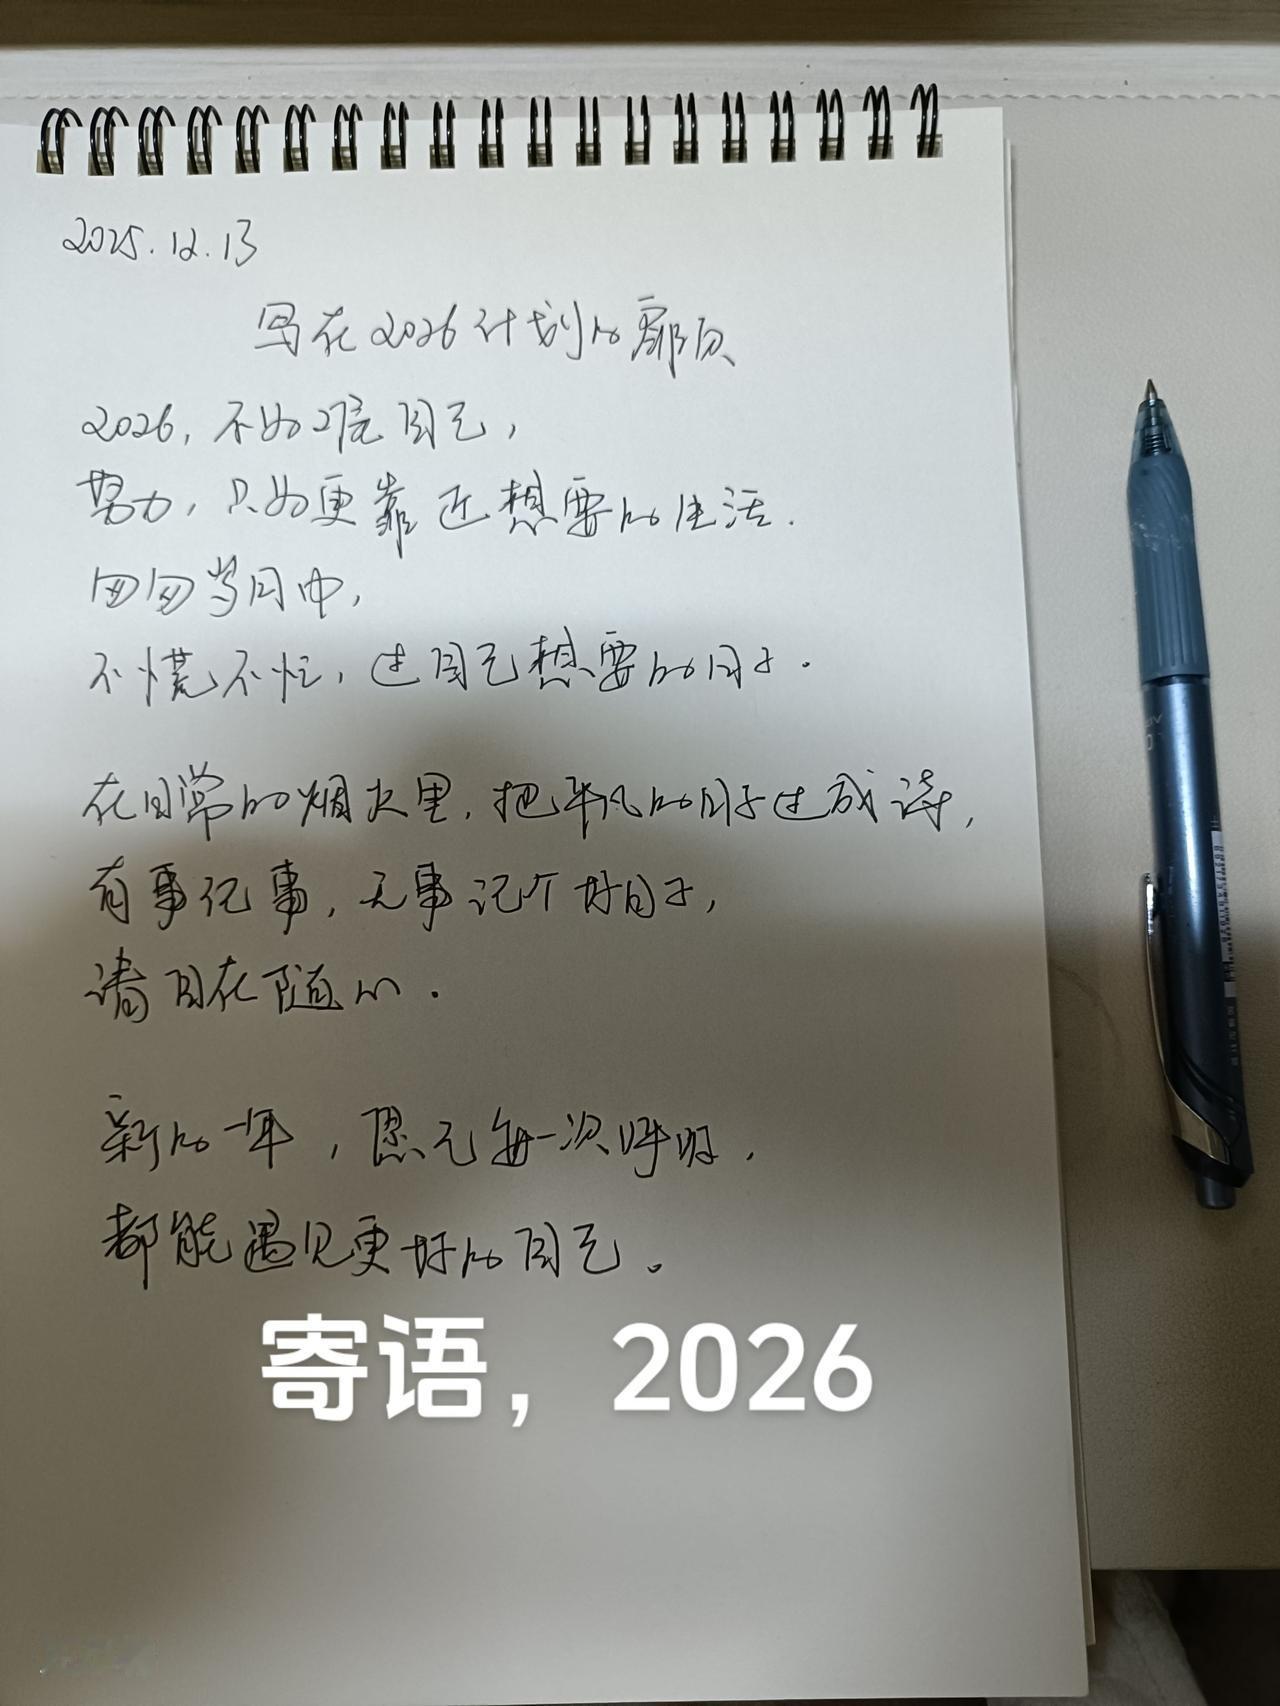 2025.12.13
写在2026计划的扉页
2026，不必惊艳自己，
努力，只为更靠近想要的生活.
匆匆岁月中，
不慌不忙，过自己想要的日子.
在日常的烟火里，把平凡的日子过成诗，
有事记事，无事记个好日子，
请自在随心.
新的一年，愿在每一次呼吸，
都能遇见更好的自己。
寄语，2026